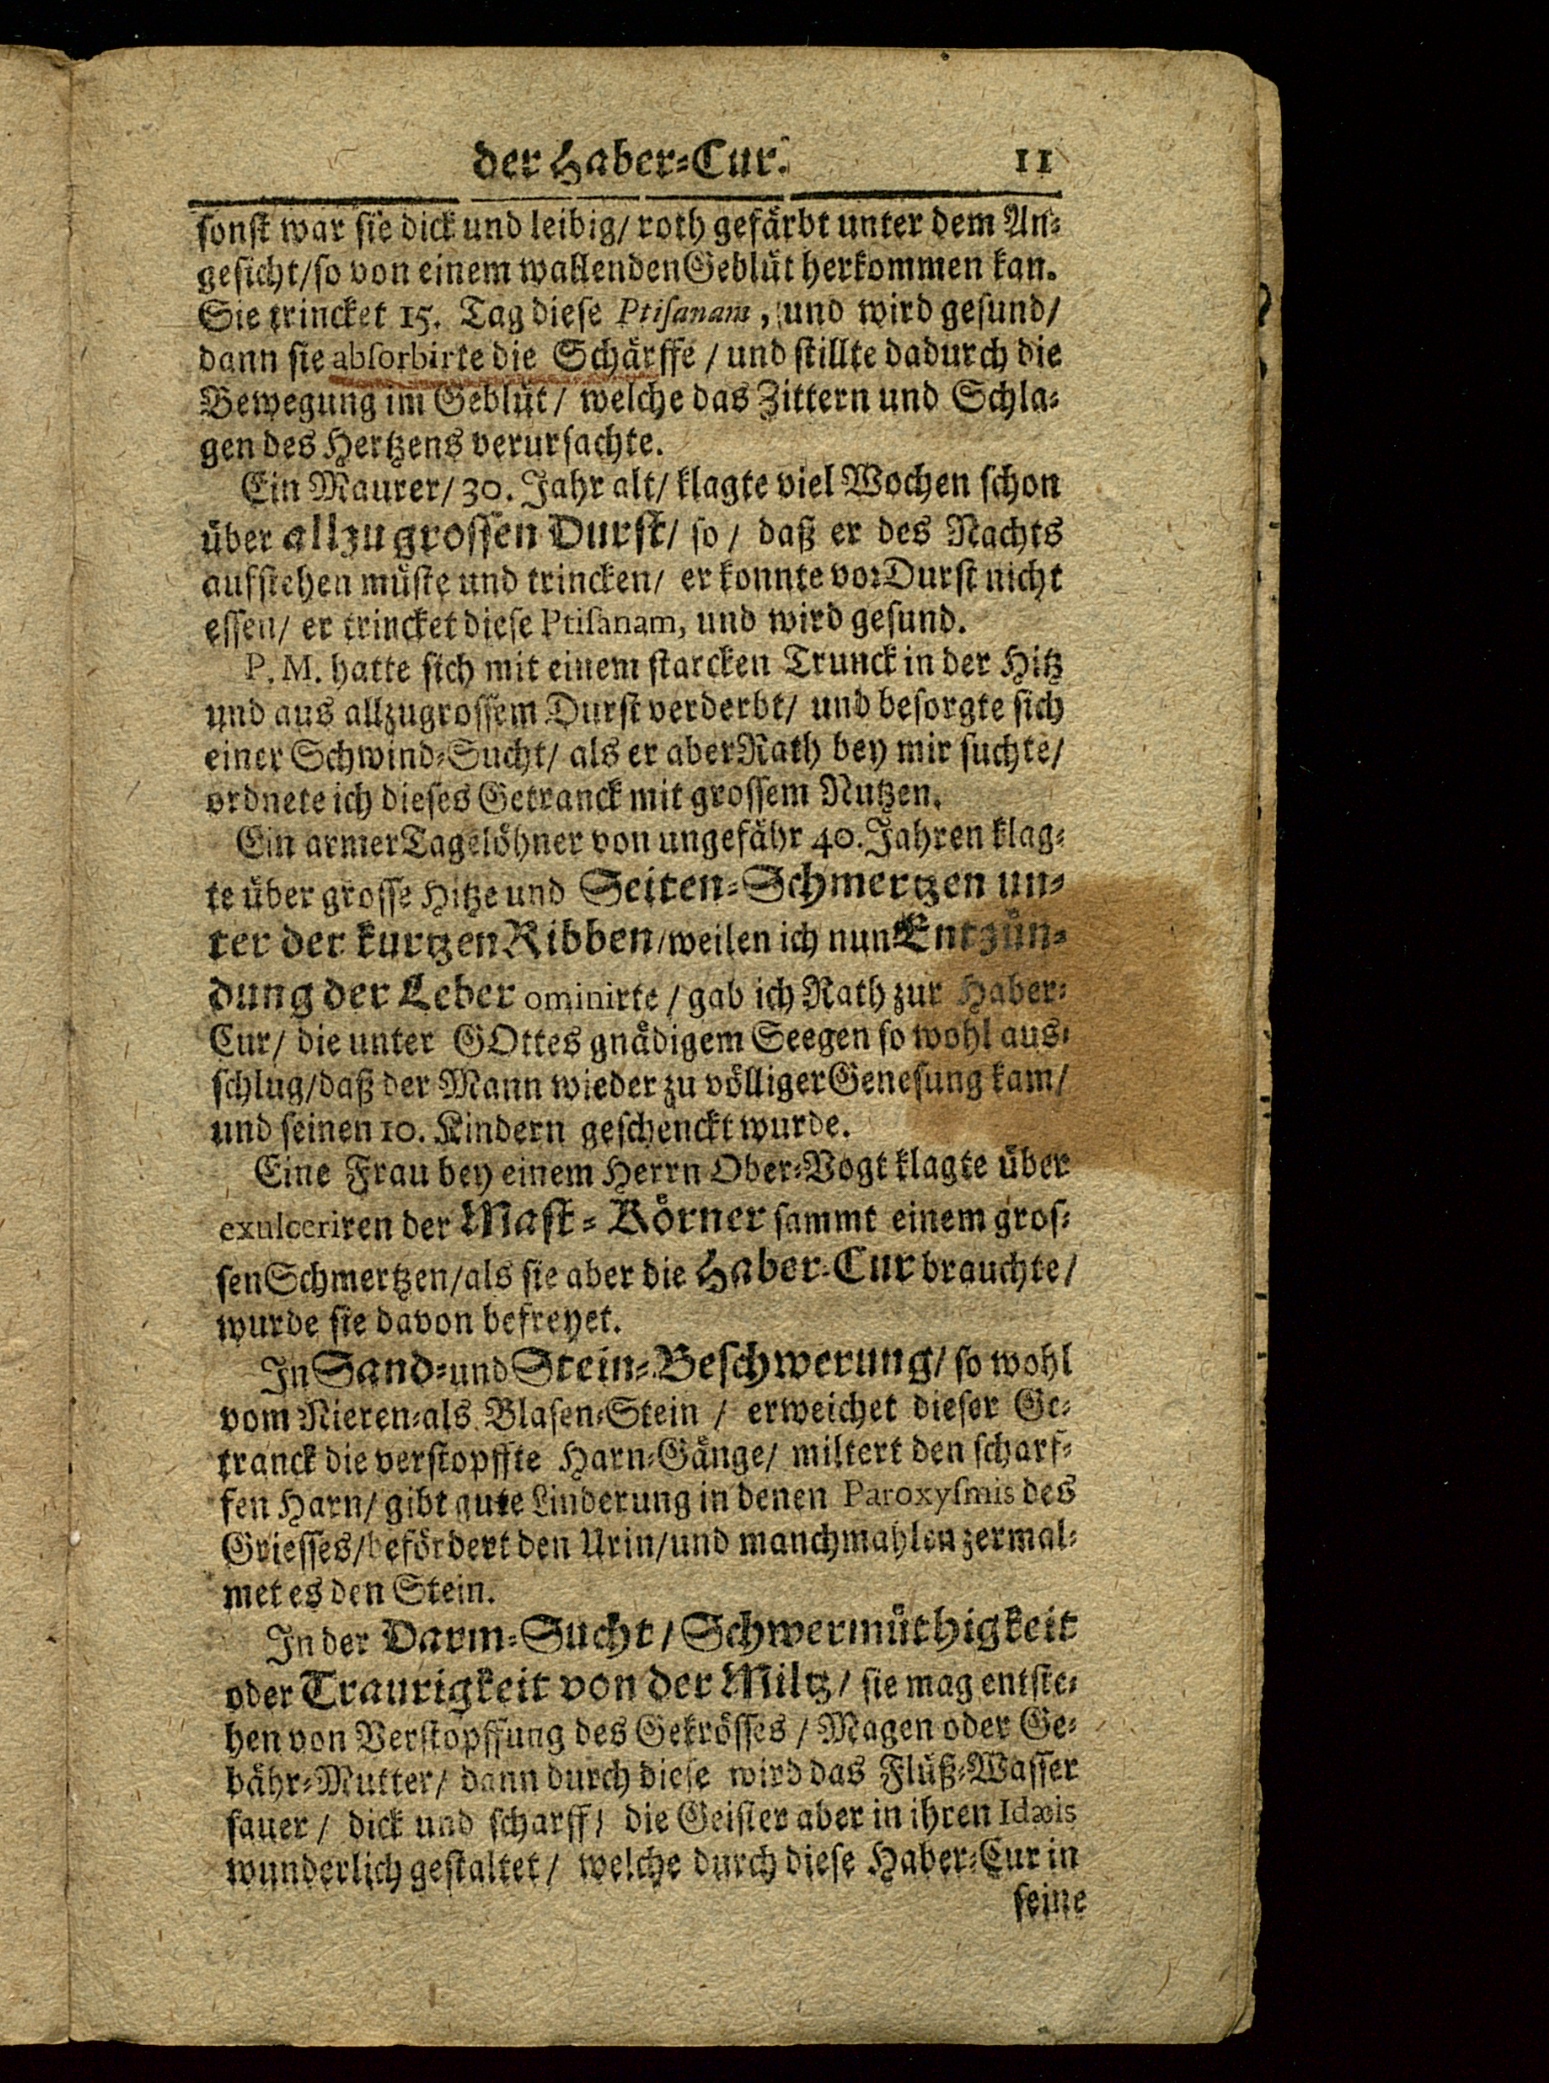 der Haber-Cur. 11
sonst war sie dick und leibig/ roth gefärbt unter dem An-
gesicht/so von einem wallenden Geblüt herkommen kan.
Sie trincket 15. Tag diese Ptisanam, und wird gesund/
dann sie absorbirte die Schärffe / und stillte dadurch die
Bewegung im Geblüt/ welche das Zittern und Schla-
gen des Hertzens verursachte.
Ein Maurer/ 30. Jahr alt/ klagte viel Wochen schon
über allzu grossen Durst/ so / daß er des Nachts
aufstehen müste und trincken/ er konnte vor Durst nicht
essen/ er trincket diese Ptisanam, und wird gesund.
P. M. hatte sich mit einem starcken Trunck in der Hitz
und aus allzugrossem Durst verderbt/ und besorgte sich
einer Schwind-Sucht/ als er aber Rath bey mir suchte/
ordnete ich dieses Getranck mit grossem Nutzen.
Ein armer Tagelöhner von ungefähr 40. Jahren klag-
te über grosse Hitze und Seiten-Schmertzen un-
ter der kurtzen Ribben/weilen ich nun Entzün-
dung der Leber ominirte / gab ich Rath zur Haber-
Cur/ die unter GOttes gnädigem Seegen so wohl aus-
schlug/daß der Mann wieder zu völliger Genesung kam/
und seinen 10. Kindern geschenckt wurde.
Eine Frau bey einem Herrn Ober-Vogt klagte über
exulceriren der Mast-Körner sammt einem gros-
sen Schmertzen/als sie aber die Haber-Cur brauchte/
wurde sie davon befreyet.
In Sand- und Stein-Beschwerung/ so wohl
vom Nieren-als Blasen-Stein / erweichet dieser Ge-
tranck die verstopffte Harn-Gänge/ miltert den scharf-
fen Harn/ gibt gute Linderung in denen Paroxysmis des
Griesses/befördert den Urin/und manchmahlen zermal-
met es den Stein.
In der Darm-Sucht/ Schwermüthigkeit
oder Traurigkeit von der Miltz/ sie mag entste-
hen von Verstopffung des Gekrösses / Magen oder Ge-
bähr-Mutter/ dann durch diese wird das Flüß-Wasser
sauer / dick und scharff/ die Geister aber in ihren Idæis
wunderlich gestaltet/ welche durch diese Haber-Cur in
seine